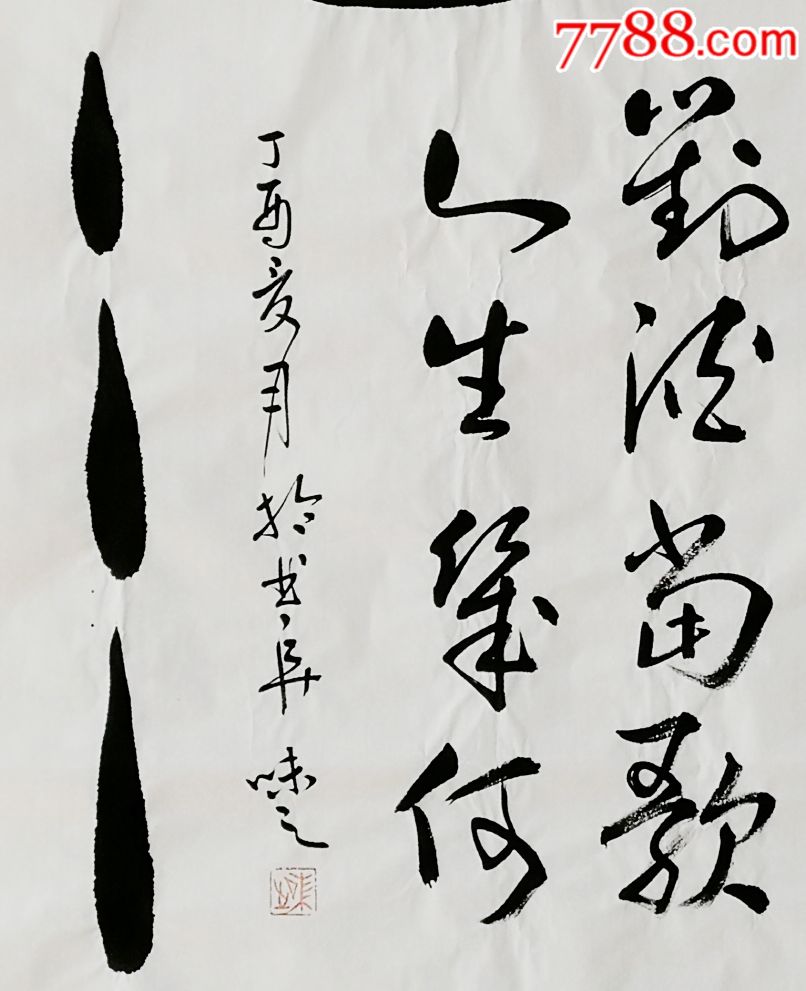 7788.com
對酒當歌
人生幾何
丁酉夏月於书库味之